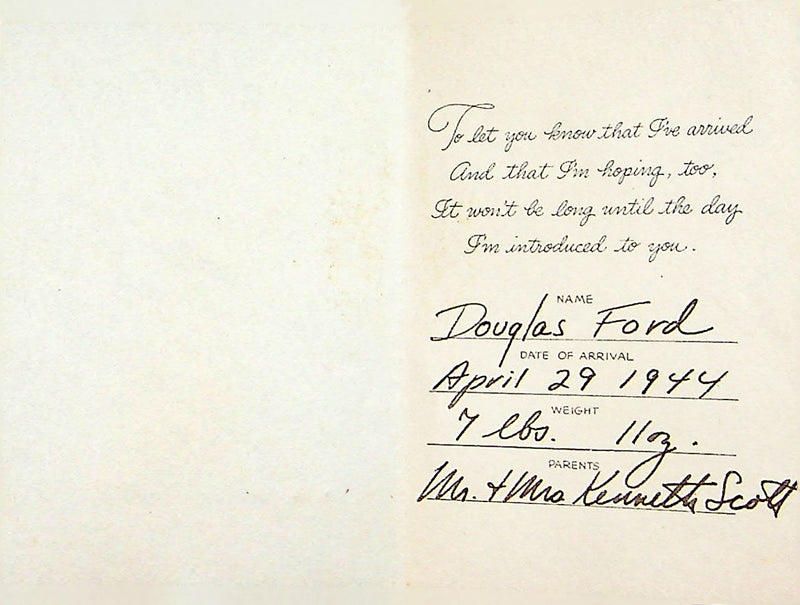 To let you know that I've arrived
And that I'm hoping, too,
It won't be long until the day
I'm introduced to you.
NAME
Douglas Ford
DATE OF ARRIVAL
April 29 1944
WEIGHT
7 lbs. 11oz.
PARENTS
Mr. + Mrs Kenneth Scott